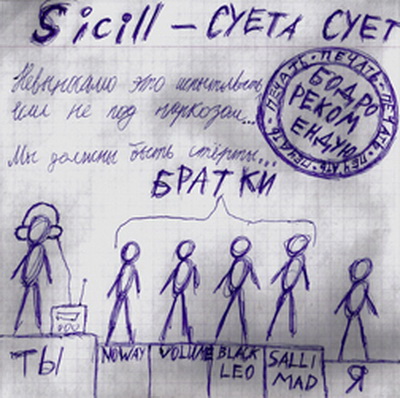 Sicill – СУЕТА СУЕТ
Невыносимо это испытывать
если не под наркозом...
Мы должны быть стёрты...
ПЕЧАТЬ · ПЕЧАТЬ · ПЕЧАТЬ · ПЕЧАТЬ · ПЕЧАТЬ
БОДРО
РЕКОМ
ЕНДУЮ
БРАТКИ
ТЫ
NOWAY
VOLUME
BLACK
LEO
SALLI
MAD
Я